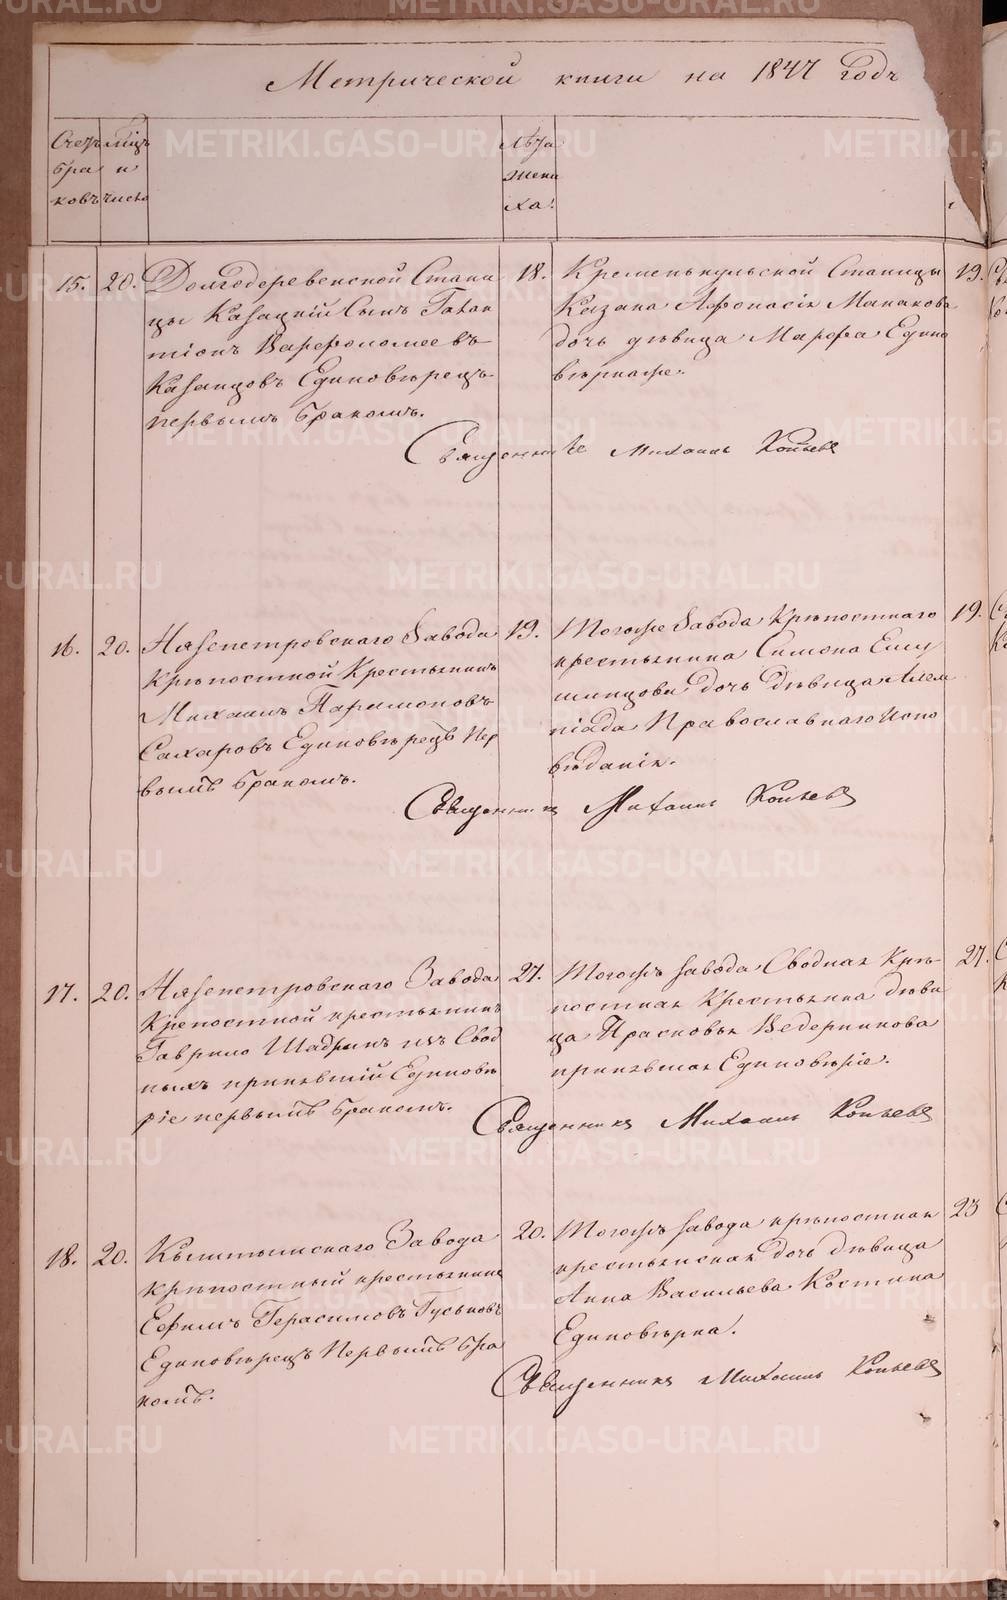 Метрической книги на 1847 годъ
Счетъ бра ковъ
Мѣц. и число
Лѣта жени ха:
15. 20. Долгодеревенской Стани
цы Казачій Сынъ Галак
тіонъ Варфоломеевъ
Казанцовъ Единовѣрецъ
первымъ бракомъ.
18.
Кременькульской Станицы
Казака Афонасія Манакова
дочь дѣвица Марфа Едино
вѣрка же.
19.
Священникъ Михаилъ Копьевъ
16. 20. Нязепетровскаго Завода
Крѣпостной Крестьянинъ
Михаилъ Парамоновъ
Сахаровъ Единовѣрецъ Пер
вымъ бракомъ.
19.
Тогоже Завода Крѣпостнаго
крестьянина Симона
дочь Дѣвица Алем
піада Православнаго Испо
вѣданія.
19.
Священникъ Михаилъ Копьевъ
17. 20. Нязепетровскаго Завода
Крѣпостной крестьянинъ
Гаврило Шадринъ изъ Свод
ныхъ принявшій Единовѣ
ріе первымъ бракомъ.
27.
Тогожъ завода Сводная Крѣ
постная Крестьянка дѣви
ца Прасковья Ведерникова
принявшая Единовѣріе.
27.
Священникъ Михаилъ Копьевъ
18. 20. Кыштымскаго Завода
крѣпостный крестьянинъ
Ефимъ Герасимовъ Гуськовъ
Единовѣрецъ Первымъ бра
комъ.
20.
Тогожъ завода крѣпостная
крестьянская дочь дѣвица
Анна Васильева Костина
Единовѣрка.
23
Священникъ Михаилъ Копьевъ
METRIKI.GASO-URAL.RU